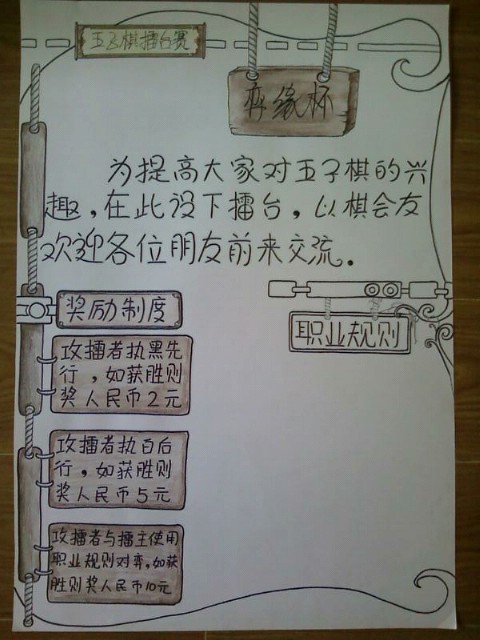 五子棋擂台赛
弈缘杯
为提高大家对五子棋的兴
趣，在此设下擂台，以棋会友
欢迎各位朋友前来交流。
奖励制度
职业规则
攻擂者执黑先
行，如获胜则
奖人民币2元
攻擂者执白后
行，如获胜则
奖人民币5元
攻擂者与擂主使用
职业规则对弈，如获
胜则奖人民币10元